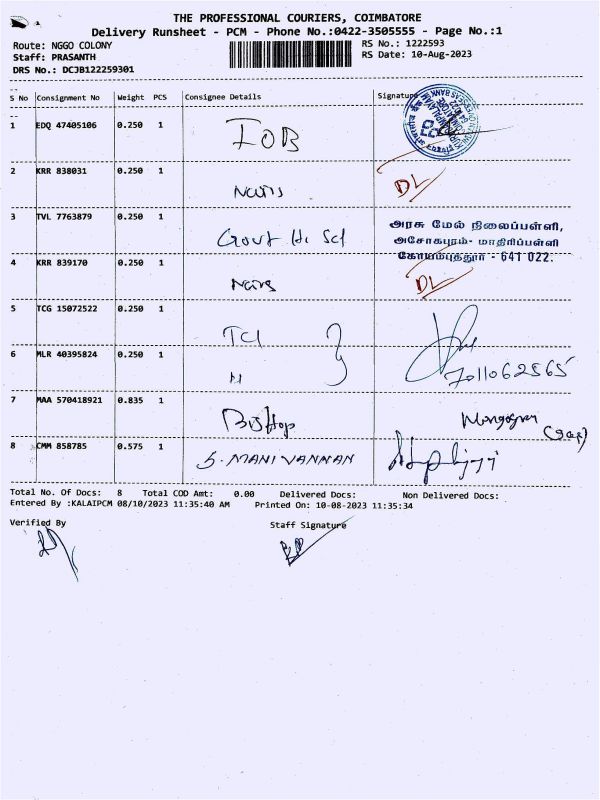 THE PROFESSIONAL COURIERS, COIMBATORE
Delivery Runsheet - PCM - Phone No.:0422-3505555 - Page No.:1
Route: NGGO COLONY
Staff: PRASANTH
DRS No.: DCJB122259301
RS No.: 1222593
RS Date: 10-Aug-2023
S No Consignment No Weight PCS Consignee Details Signature
1 EDQ 47405106 0.250 1 IOB
2 KRR 838031 0.250 1 DL
3 TVL 7763879 0.250 1 Govt Hi Scl
அரசு மேல் நிலைப்பள்ளி,
அசோகபுரம்- மாதிரிப்பள்ளி
கோயம்புத்தூர் - 641 022.
4 KRR 839170 0.250 1 DL
5 TCG 15072522 0.250 1
6 MLR 40395824 0.250 1 7011062565
7 MAA 570418921 0.835 1 Bishop
8 CMM 858785 0.575 1 S. MANIVANNAN
Total No. Of Docs: 8 Total COD Amt: 0.00 Delivered Docs: Non Delivered Docs:
Entered By :KALAIPCM 08/10/2023 11:35:40 AM Printed On: 10-08-2023 11:35:34
Verified By Staff Signature